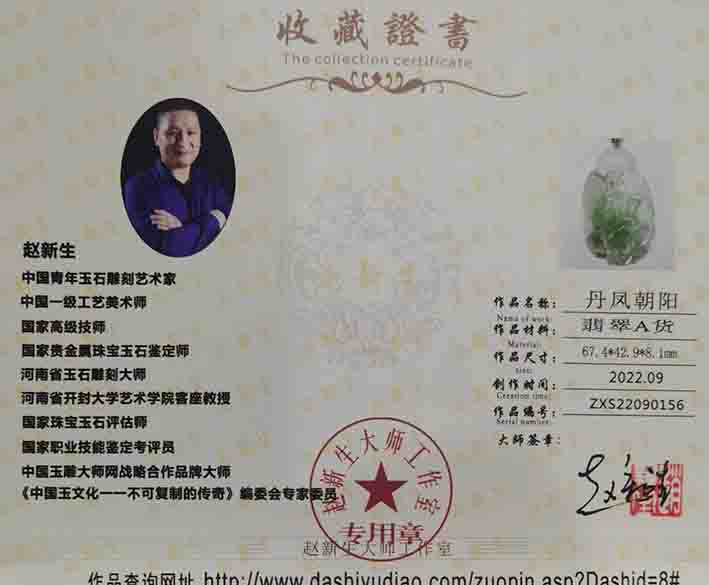 收藏證書
The collection certificate
赵新生
中国青年玉石雕刻艺术家
中国一级工艺美术师
国家高级技师
国家贵金属珠宝玉石鉴定师
河南省玉石雕刻大师
河南省开封大学艺术学院客座教授
国家珠宝玉石评估师
国家职业技能鉴定考评员
中国玉雕大师网战略合作品牌大师
《中国玉文化一一不可复制的传奇》编委会专家委员
作品名称： 丹凤朝阳
Name of work:
作品材料： 翡翠A货
Material:
作品尺寸： 67.4*42.9*8.1mm
size:
创作时间： 2022.09
Creation time:
作品编号： ZXS22090156
Serial number:
大师签章：
赵新生大师工作室
专用章
赵新生大师工作室
作品查询网址 http://www.dashiyudiao.com/zuopin.asp?Dashid=8#